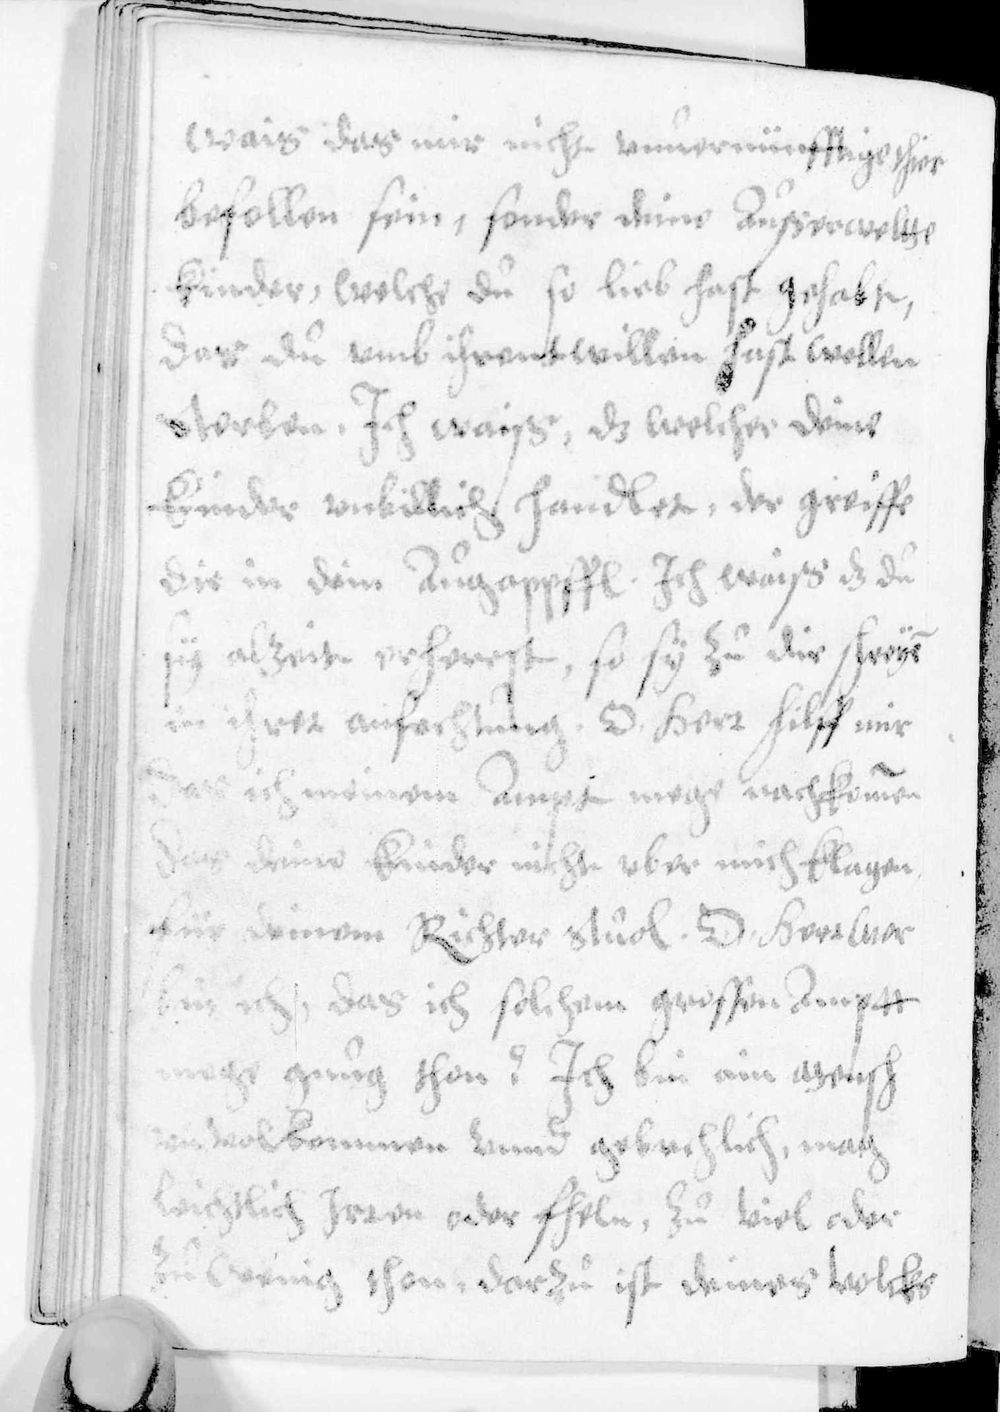 wais das mir nicht vnuernünfftige thier
befollen sein, sonder deine Außerwelte
Kinder, welche du so lieb hast gehabt,
das du vmb ihrent willen hast wellen
sterben. Ich waiß, dz welcher deine
Kinder vnbillich handlet, der greiffe
dir in dein Augappffl. Ich waiß dz du
sy alzeit erhorest, so sy zu dir schreyē
in ihrer anfechtung. O. Herr hilff mir
das ich meinem Ampt mege nachkom̄en
das deine Kinder nicht vber mich klagen
für deinem Richter stuol. O. Herr wer
bin ich, das ich solchem grossen Amptt
mege gnug thon? Ich bin ain mensch
vnvolkommen vnnd gebrechlich, mag
leichtlich Irren oder fheln, zu viel oder
zu wenig thon, darzu ist deines volcks